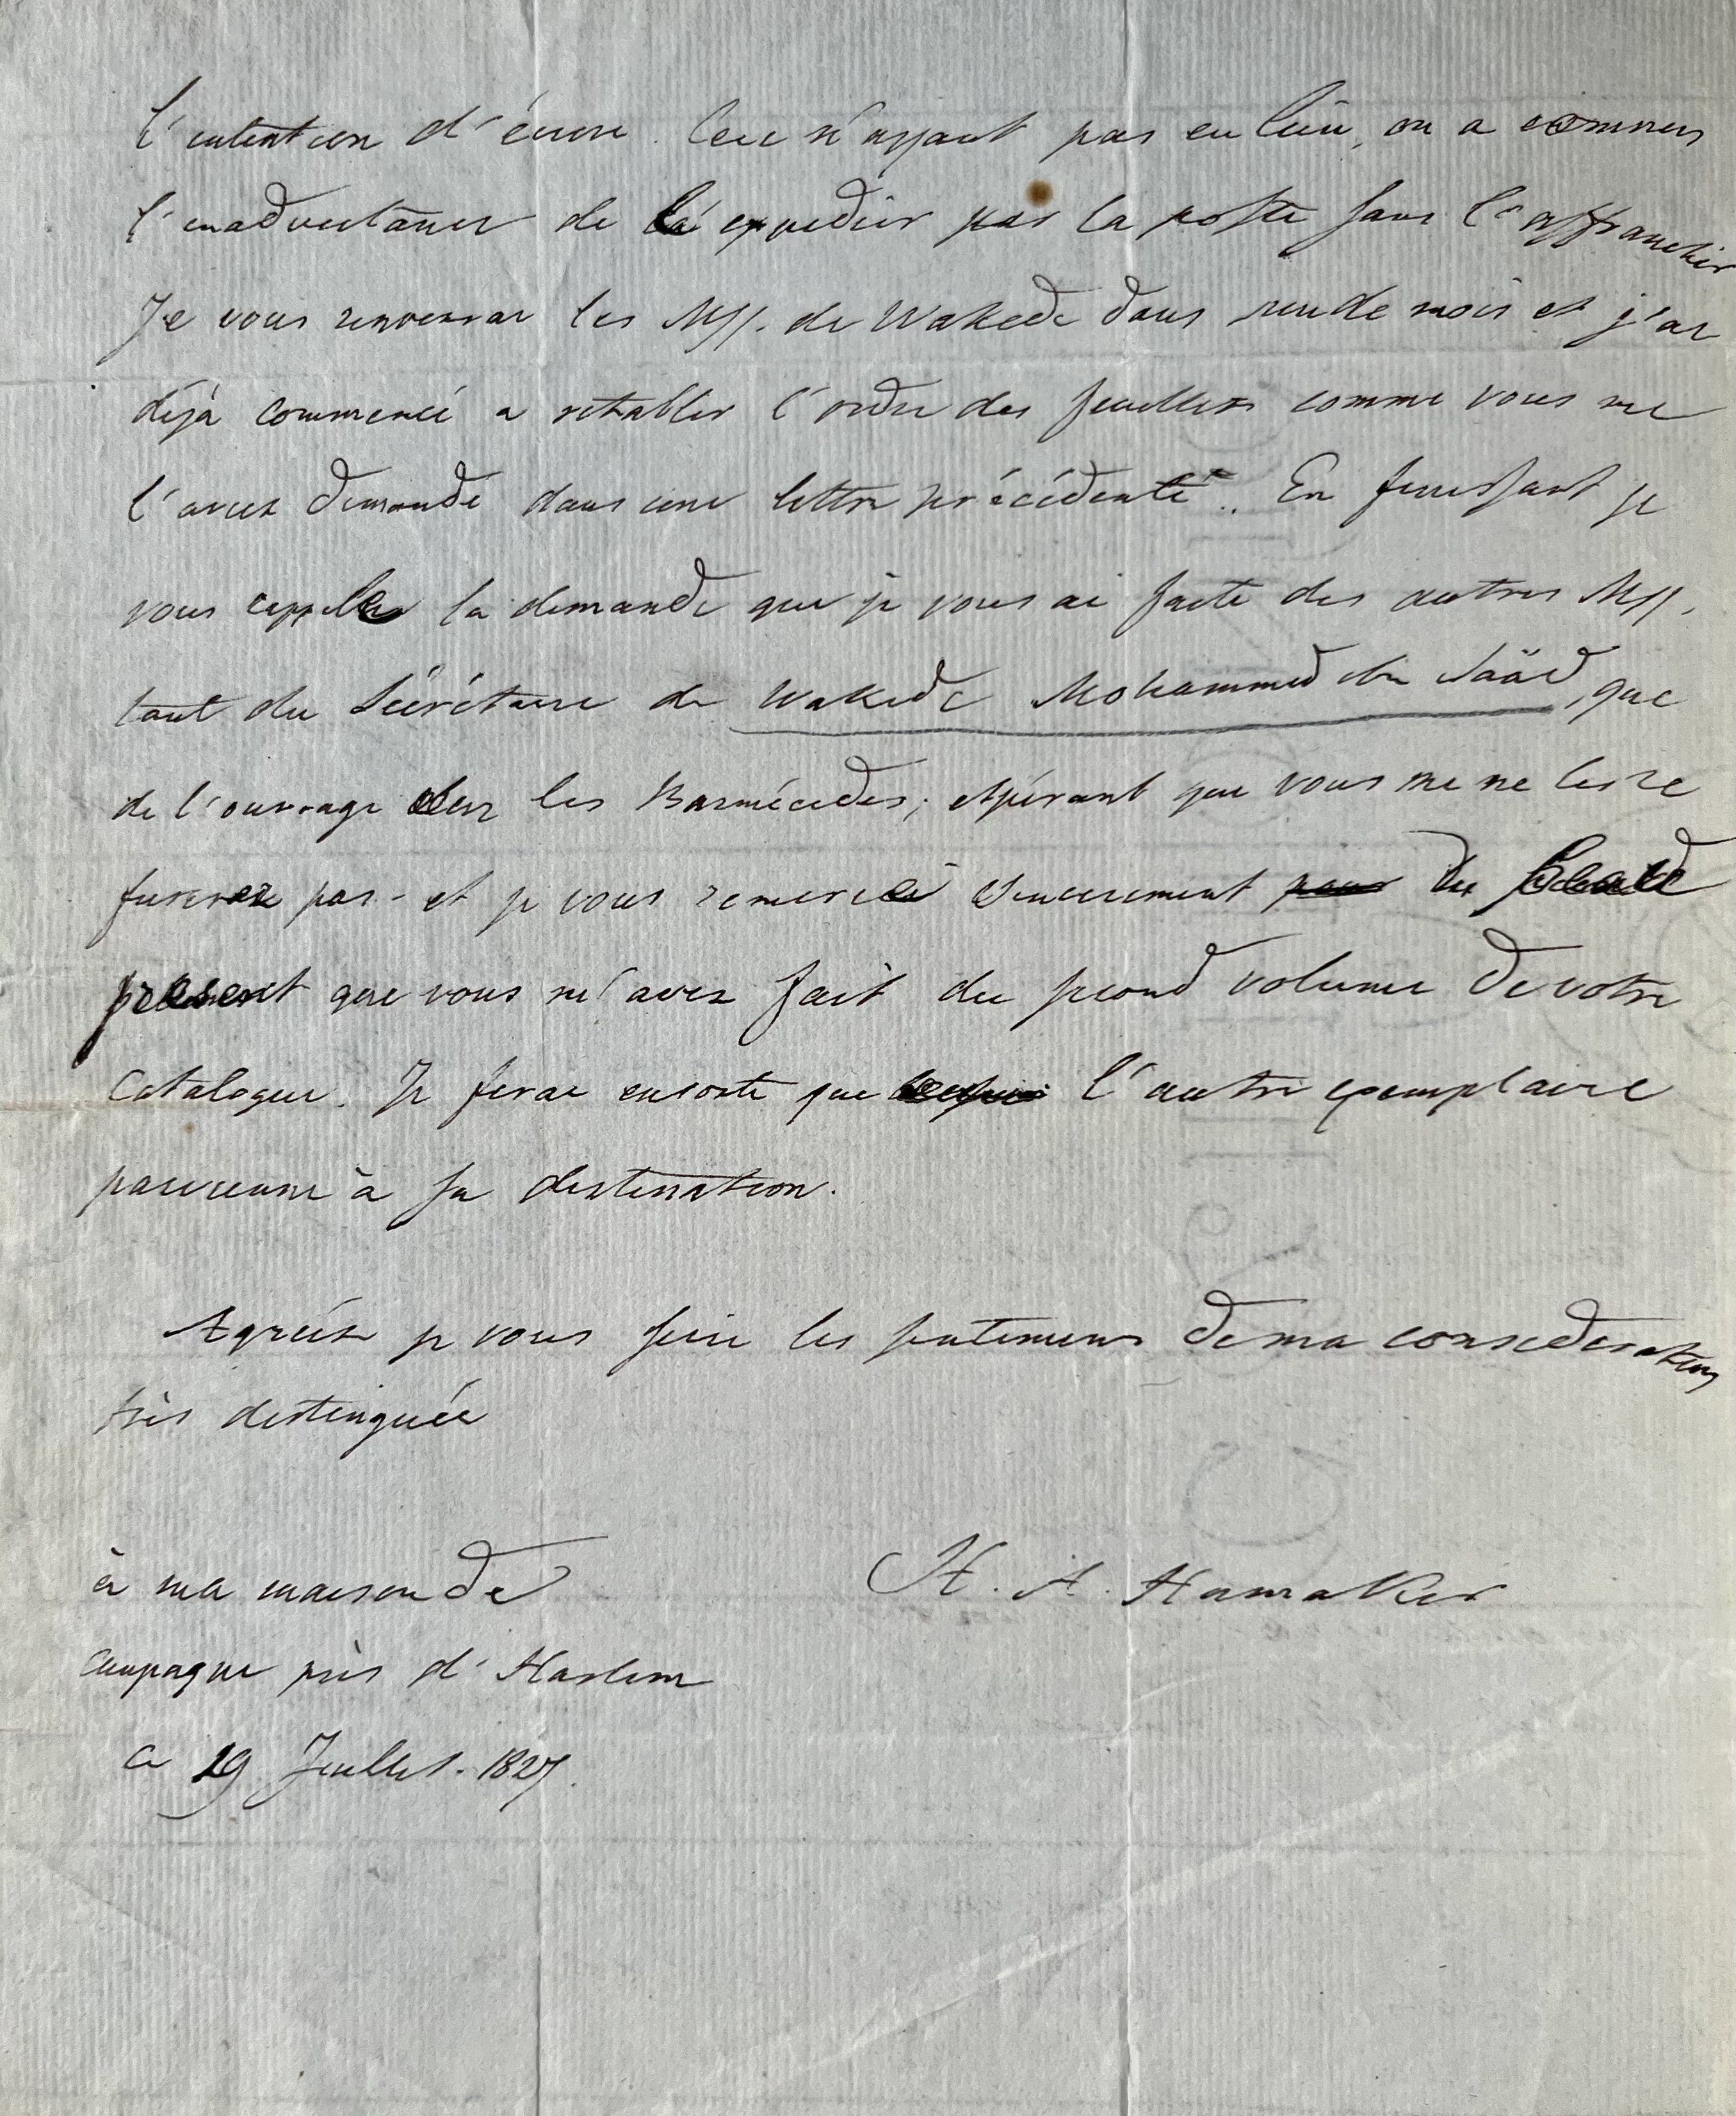 l'intention d'écrire. Ceci n'ayant pas eu lieu, on a commis
l'inadvertance de la expedier par la poste sans l'affranchir
Je vous renverrai les Mss. de Wakedi dans un de mois et j'ai
déjà commencé a retablir l'ordre des feuillets comme vous me
l'avez demandé dans une lettre précédente. En finissant je
vous rappelle la demande que je vous ai faite des autres Mss.
tant du Sécrétaire de Wakedi Mohammed ibn Sääd, que
de l'ouvrage sur les Barmécides; espérant que vous me ne les re
fuserez pas - et je vous remercie sincerement pour du beau
présent que vous m'avez fait du second volume de votre
Catalogue. Je ferai ensorte que l'autre exemplaire
parvienne à sa destination.
Agréez je vous prie les sentimens de ma consideration
très distinguée
à ma maison de H. A. Hamaker
campagne près d'Harlem
ce 29 Juillet. 1827.